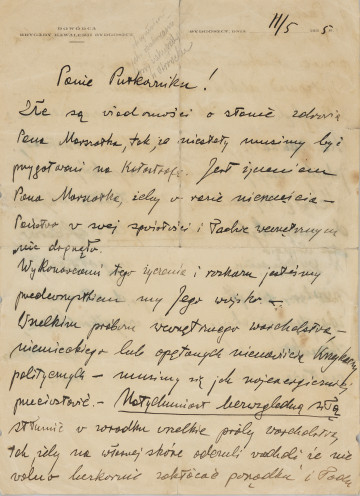 DOWÓDCA
BRYGADY KAWALERII BYDGOSZCZ
BYDGOSZCZ, DNIA 11/5 1935.
Panie Pułkowniku!
Złe są wiadomości o stanie zdrowia
Pana Marszałka, tak że niestety musimy być
przygotowani na Katastrofę. Jest życzeniem
Pana Marszałka, żeby w razie nieszczęścia –
Państwo w swej spoistości i Ładzie wewnętrznym
nie drgnęło.
Wykonawcami tego życzenia i rozkazu jesteśmy
przedewszystkiem my Jego wojsko. –
Wszelkim próbom wewnętrznego warcholstwa –
niemieckiego lub opętanych nienawiścią
politycznych – musimy się jak najenergiczniej
przeciwstawić. – Natychmiast bezwzględną siłą
stłumić w zarodku wszelkie próby warcholstwa,
tak żeby na własnej skórze odczuli wszyscy że nie
wolno bezkarnie zakłócać porządku i Ładu